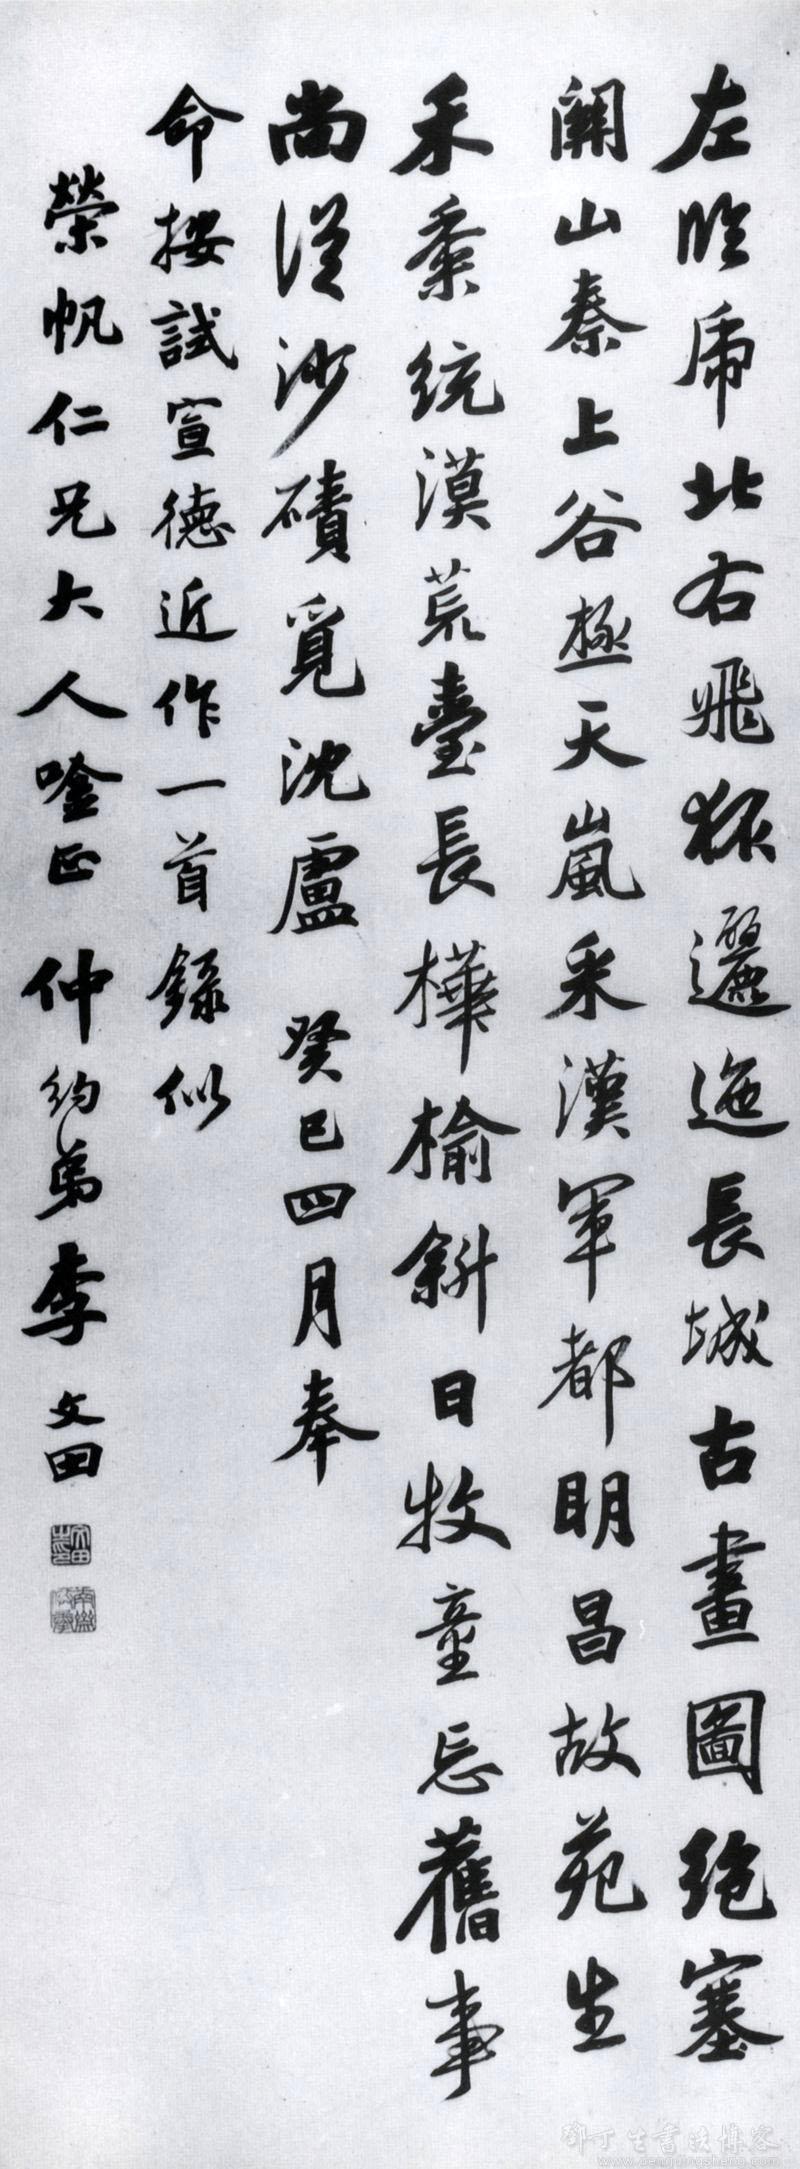 左眎虒北右飛狐邐迤長城古畫圖絶塞
關山秦上谷極天嵐采漢軍都明昌故苑生
禾黍統漠荒臺長樺榆斜日牧童忘舊事
尚從沙磧覓沈盧 癸巳四月奉
命按試宣德近作一首錄似
榮帆仁兄大人唫正 仲約弟李文田
鄧丁生書法博客
www.dengdingsheng.com